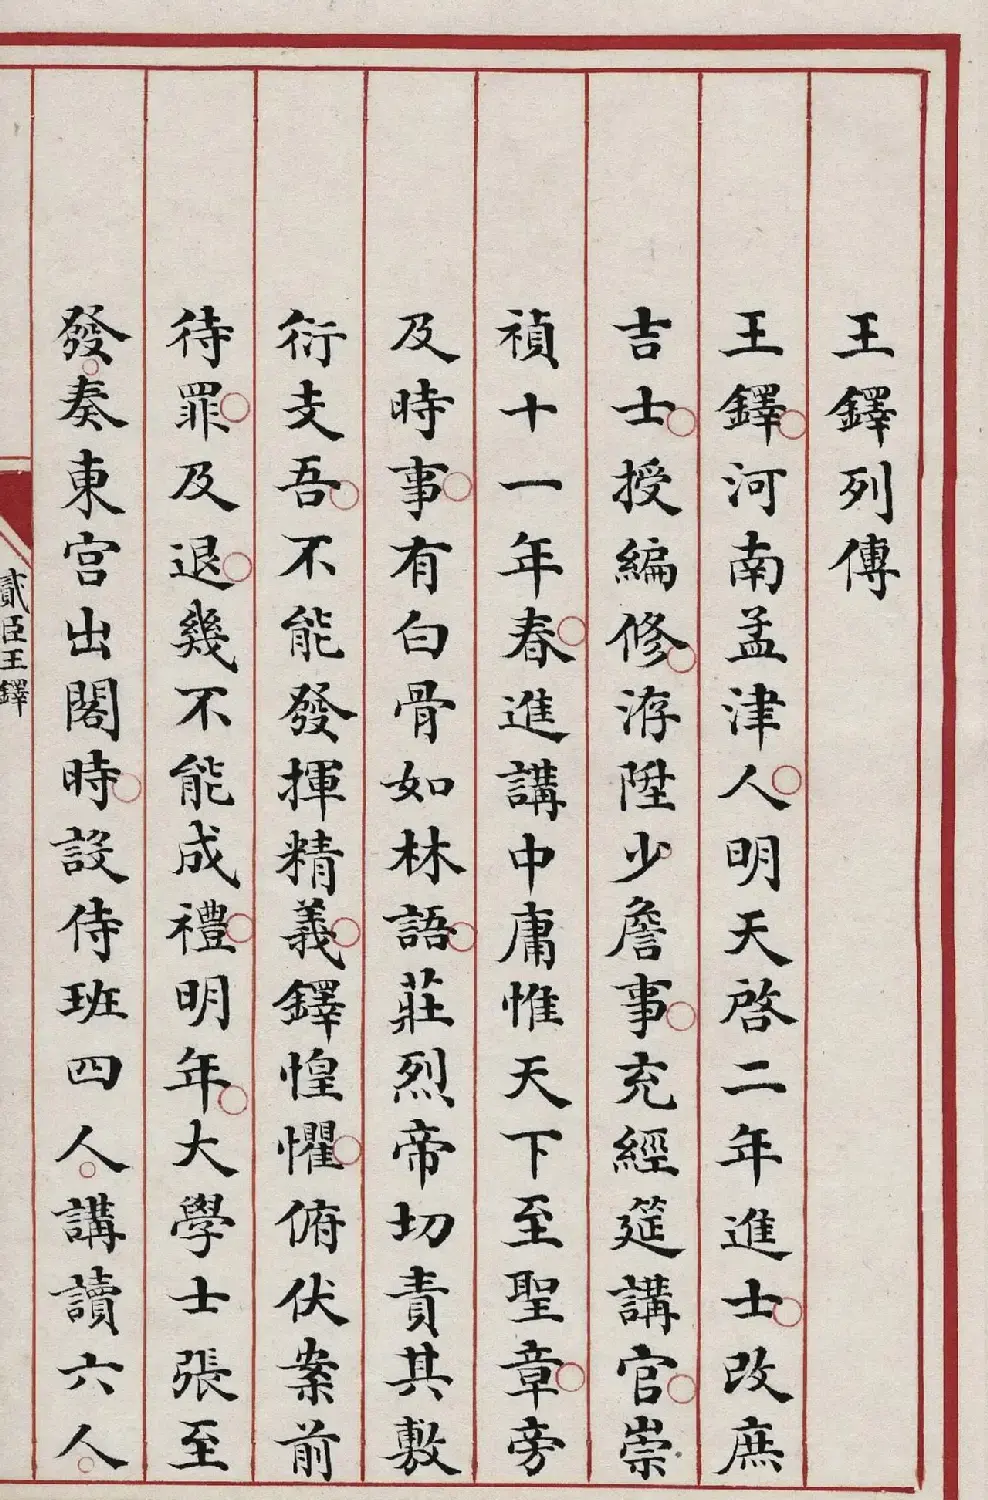 王鐸列傳
王鐸河南孟津人明天啓二年進士改庶
吉士授編修洊陞少詹事充經筵講官崇
禎十一年春進講中庸惟天下至聖章旁
及時事有白骨如林語莊烈帝切責其敷
衍支吾不能發揮精義鐸惶懼俯伏案前
待罪及退幾不能成禮明年大學士張至
發奏東宮出閣時設侍班四人講讀六人
貳臣王鐸